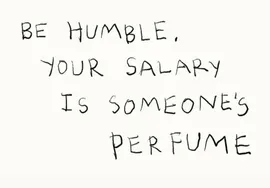 BE HUMBLE.
YOUR SALARY
IS SOMEONE'S
PERFUME